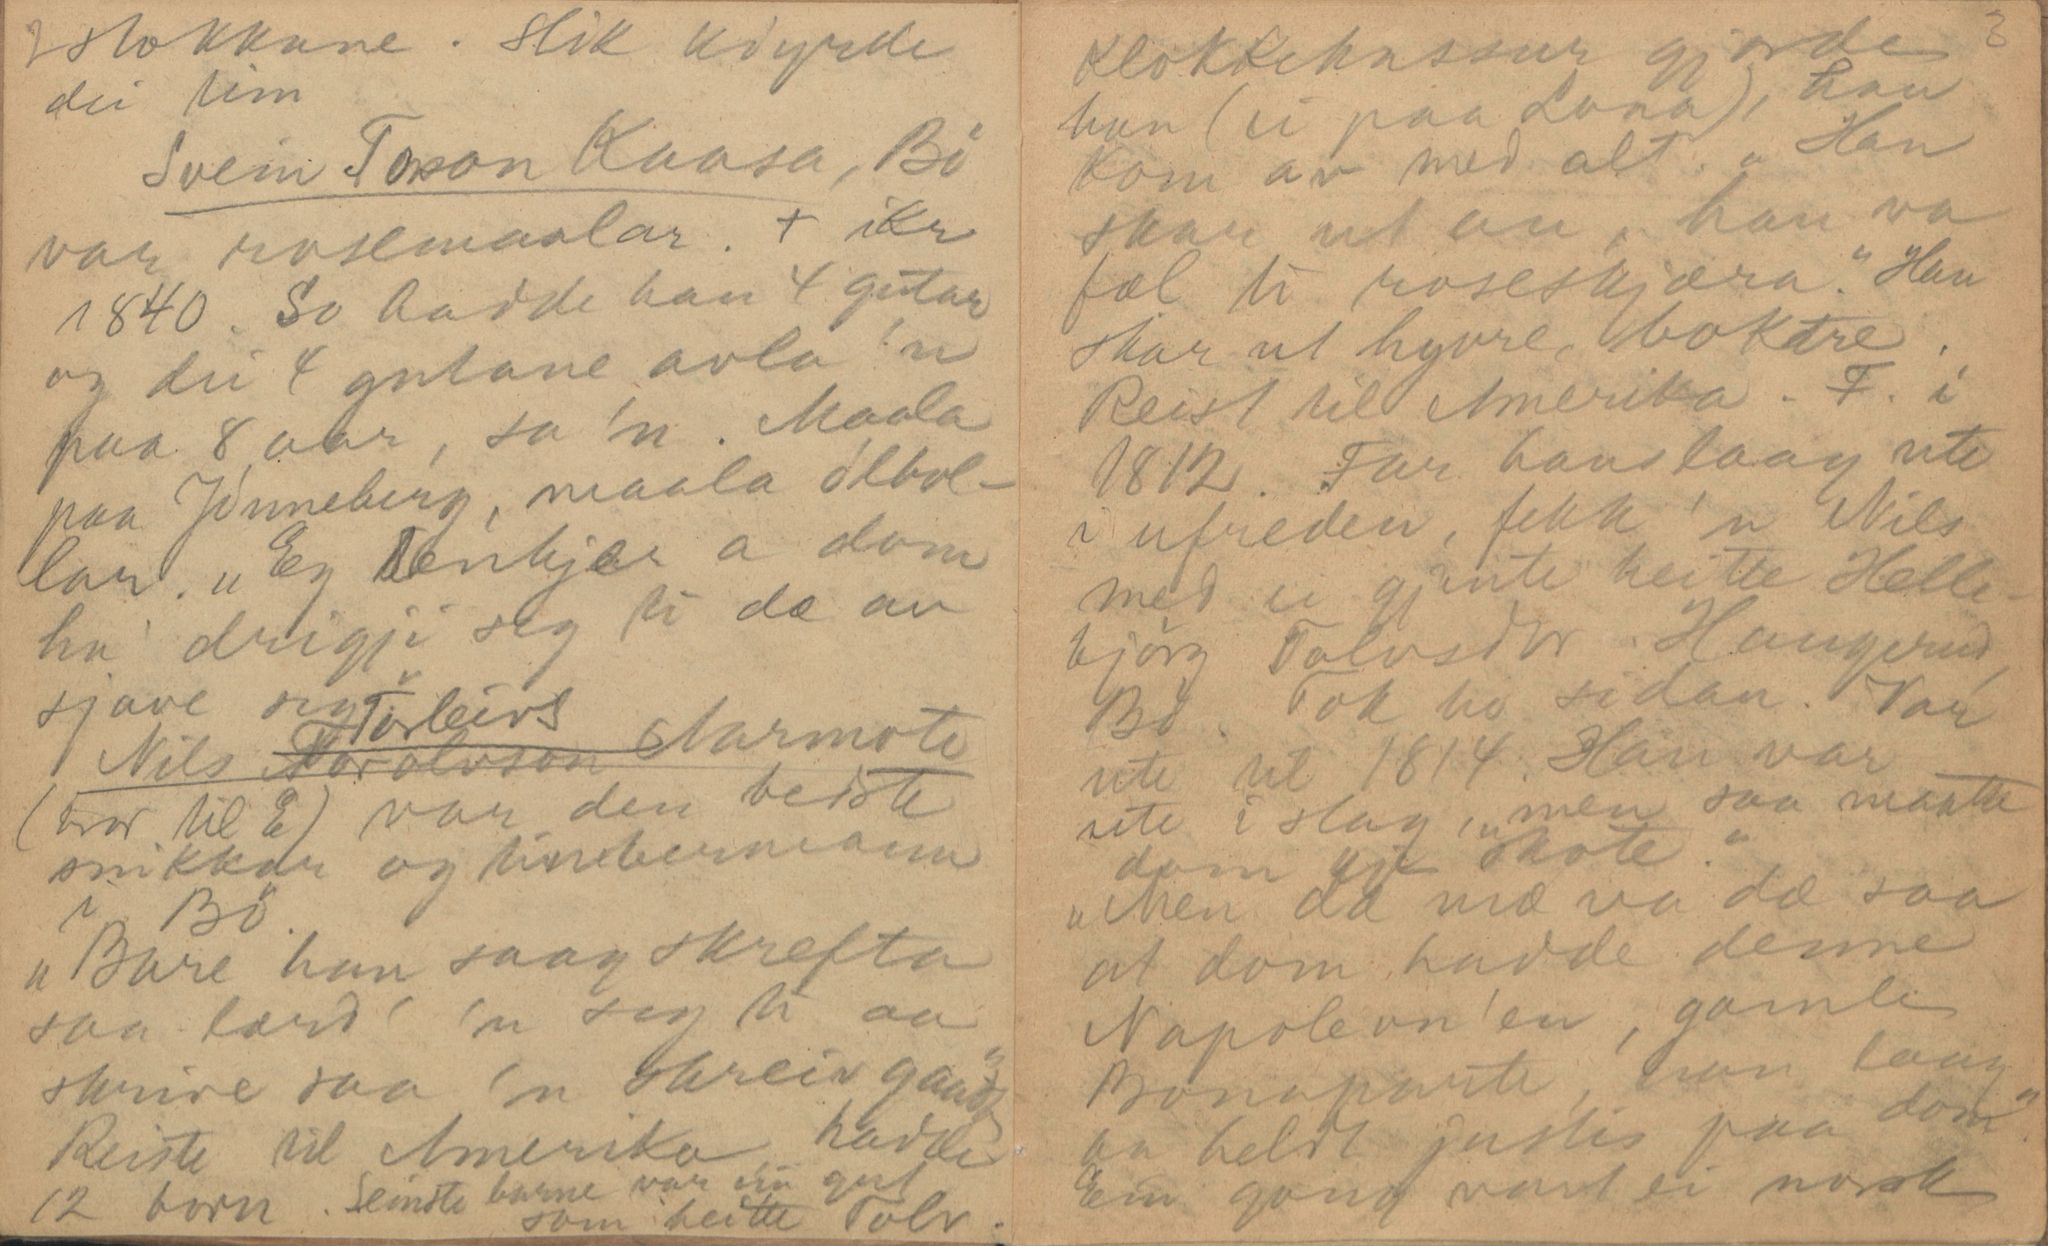 2
stokkane. Slik köyrde
dei tim
Svein Torson Kaasa, Bö
var rosemaalar. + ikr
1840. So hadde han 4 gutar
og dei 4 gutane avla 'n
paa 8 aar, sa 'n. Maala
paa Jönneberg, maala ölbol-
lar. "Eg tenkjer a dom
ha' drigji seg ti dæ av
sjave seg"
Torleivs
Nils Aarmote
(bror til E) var den beiste
snikkar og timbermann
i Bö.
"Bare han saag skrefta
saa lærd' 'n seg ti aa
skrive saa 'n skreiv gaadt"
Reiste til Amerika hadde
12 born. Seinste barne var ein gut
som heitte Tolv.
3
Klokkehussur gjorde
han (ei paa Lona), han
kom av med alt. "Han
skar ut en, han va
fæl ti roseskjæra." Han
skar ut hyvre, boktre.
Reist til Amerika. F. i
1812. Far hans laag ute
i ufreden, fekk 'n Nils
med ei gjente heitte Helle-
björg Tolvsdtr Haugerud,
Bö. Tok ho sidan. Var
ute til 1814. Han var
ute i slag, "men saa maatte
dom kje skote."
"Men dæ væ va dæ saa
at dom hadde denne
Napoleon'en, gamle
Bonaparte, han laag
aa heldt justis paa dom".
Ein gong vart ei norsk